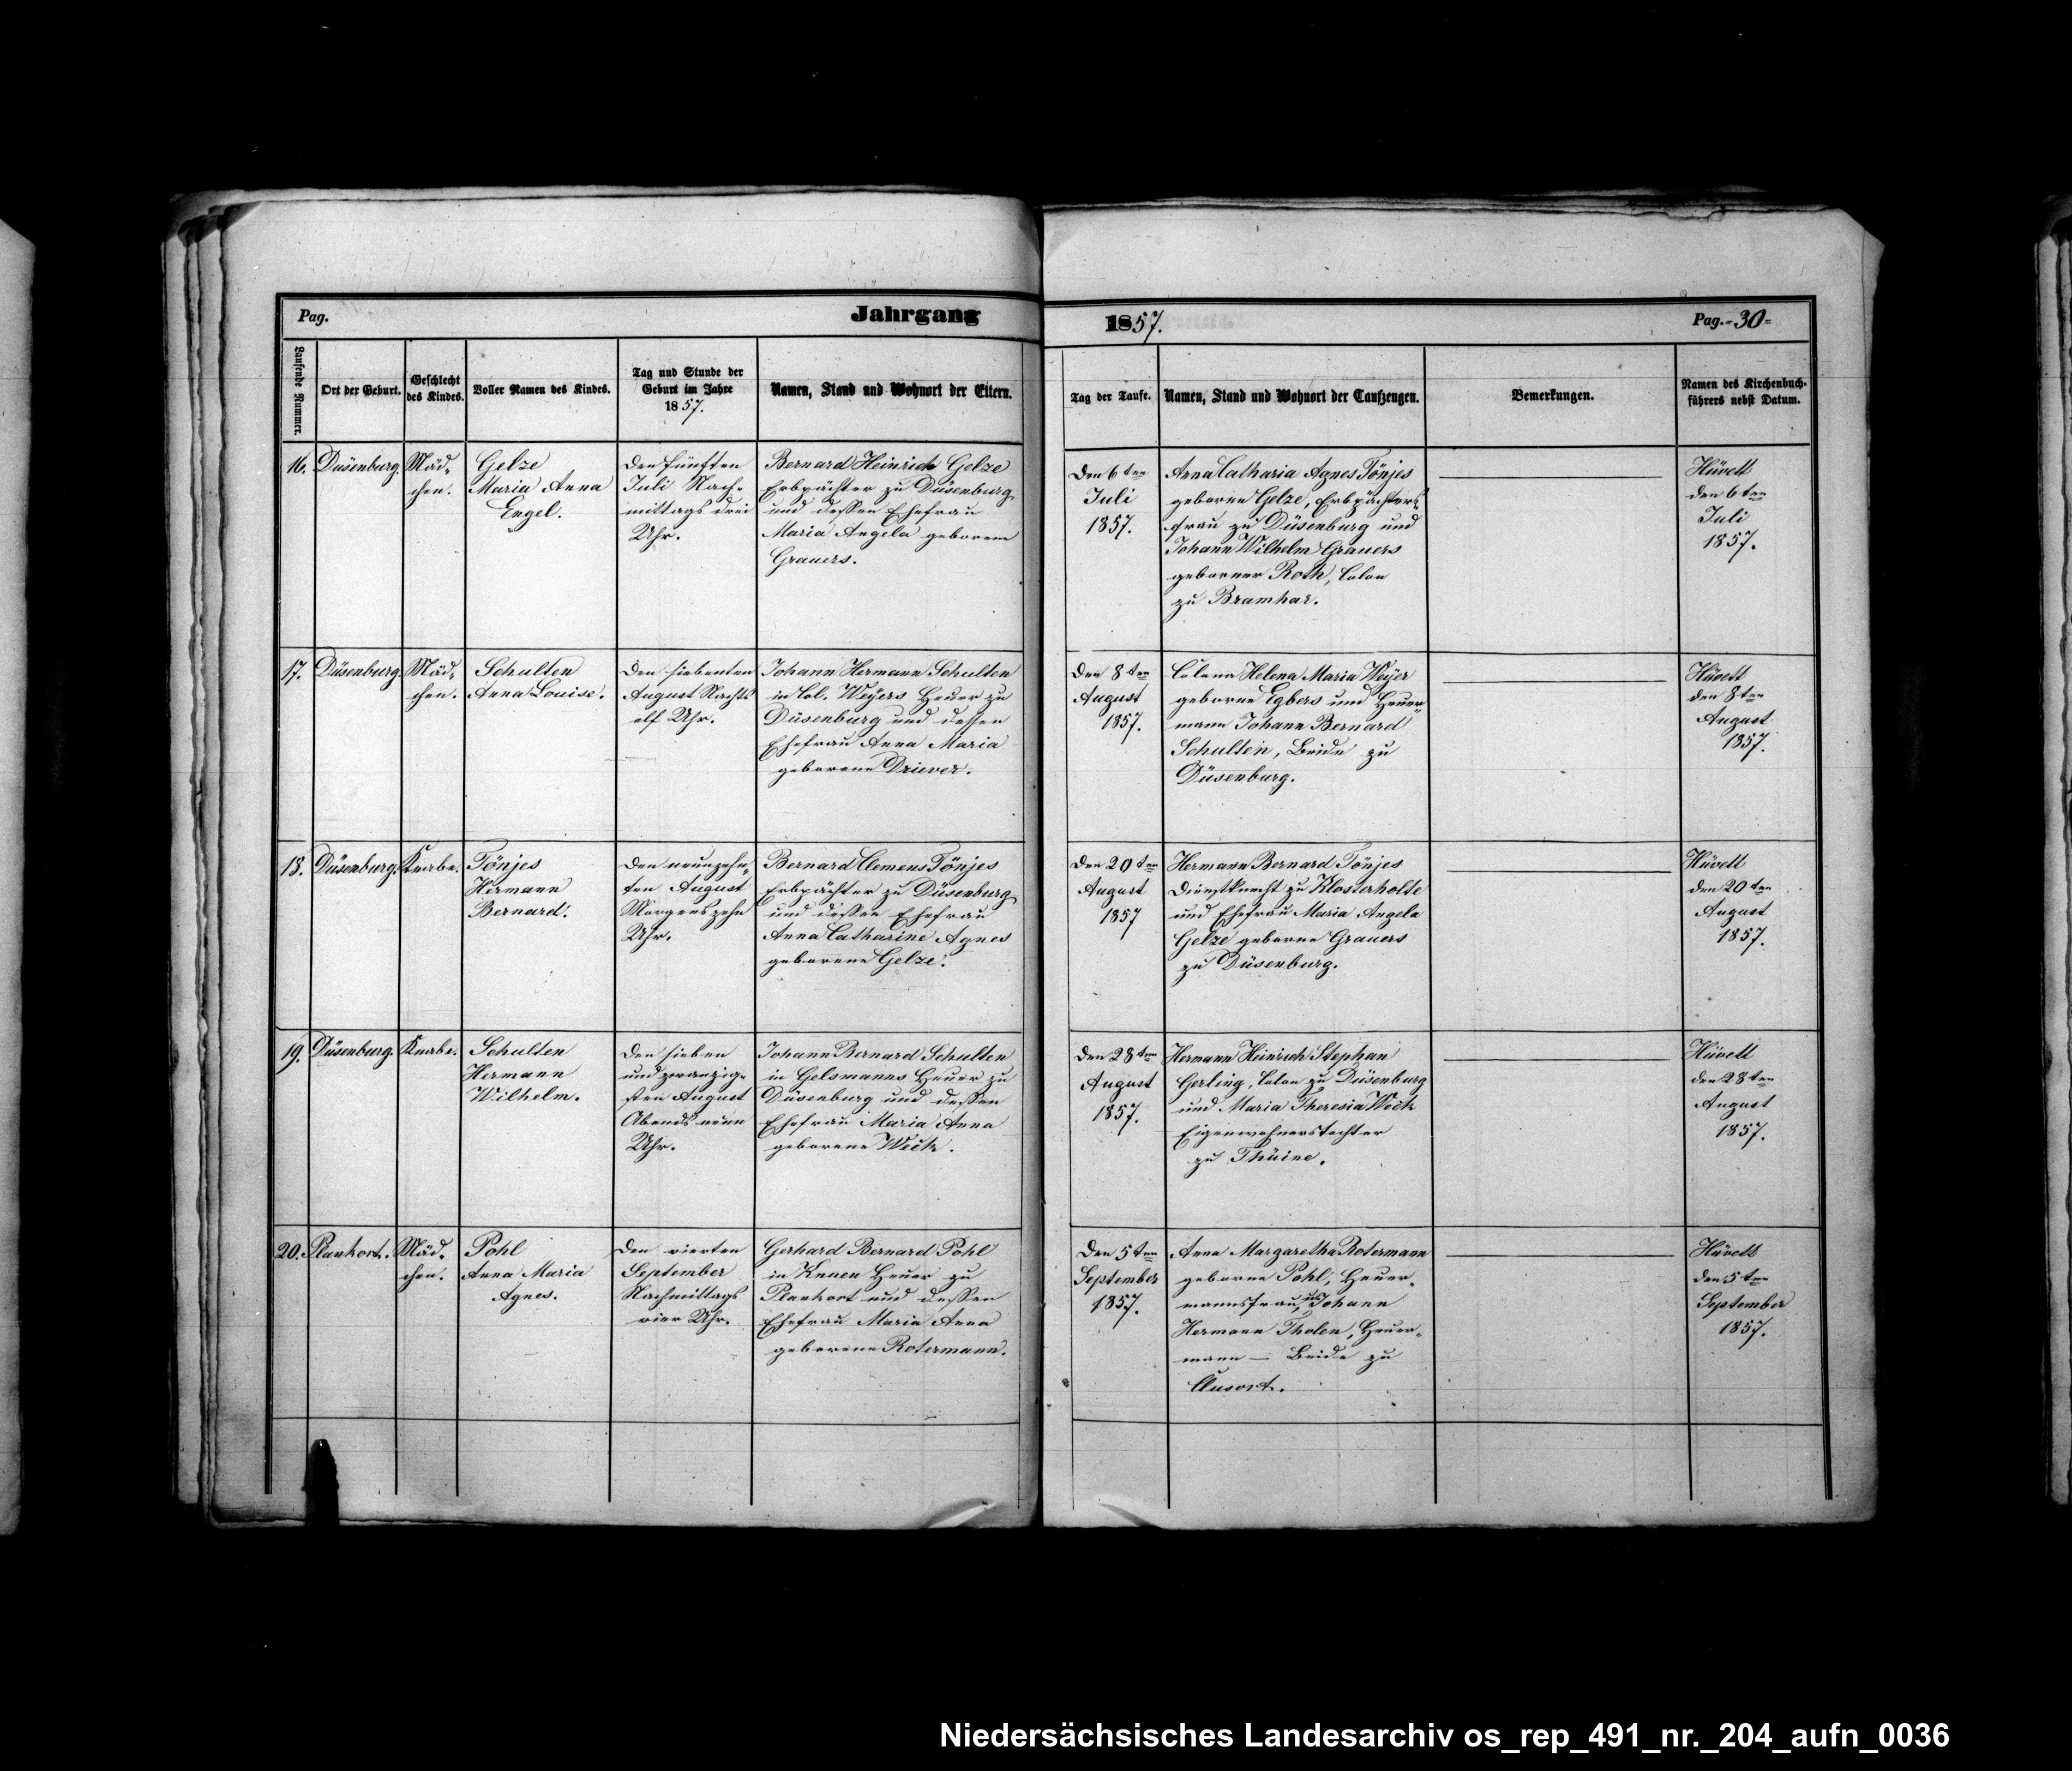 Pag.
Jahrgang
1857.
Pag. =30=
Laufende Nummer.
Ort der Geburt.
Geschlecht
des Kindes.
Voller Namen des Kindes.
Tag und Stunde der
Geburt im Jahre
1857.
Namen, Stand und Wohnort der Eltern.
Tag der Taufe.
Namen, Stand und Wohnort der Taufzeugen.
Bemerkungen.
Namen des Kirchenbuch-
führers nebst Datum.
16.
Düsenburg.
Mäd-
chen.
Gelze
Maria Anna
Engel.
Den fünften
Juli Nach-
mittags drei
Uhr.
Bernard Heinrich Gelze
Erbpächter zu Düsenburg
und dessen Ehefrau
Maria Angela geborene
Grauers.
Den 6ten
Juli
1857.
Anna Catharia Agnes Tönjes
geborne Gelze, Erbpächters-
frau zu Düsenburg und
Johann Wilhelm Grauers
geborner Roth, Colon
zu Bramhar.
Hüvett
den 6ten
Juli
1857.
17.
Düsenburg.
Mäd-
chen.
Schulten
Anna Louise.
Den siebenten
August Nachts
elf Uhr.
Johann Hermann Schulten
in Col. Weyers Heuer zu
Düsenburg und dessen
Ehefrau Anna Maria
geborene Driever.
Den 8ten
August
1857.
Helena Maria Weyer
geborne Egbers und Heuer-
mann Johann Bernard
Schulten, Beide zu
Düsenburg.
Hüvett
den 8ten
August
1857.
18.
Düsenburg.
Knabe.
Tönjes
Hermann
Bernard.
Den neunzehn-
ten August
Morgens zehn
Uhr.
Bernard Clemens Tönjes
Erbpächter zu Düsenburg
und dessen Ehefrau
Anna Catharine Agnes
geborene Gelze.
Den 20ten
August
1857
Hermann Bernard Tönjes
Dienstknecht zu Klosterholte
und Ehefrau Maria Angela
Gelze geborne Grauers
zu Düsenburg.
Hüvett
den 20ten
August
1857.
19.
Düsenburg.
Knabe.
Schulten
Hermann
Wilhelm.
Den sieben
und zwanzig-
sten August
Abends neun
Uhr.
Johann Bernard Schulten
in Gelsmanns Heuer zu
Düsenburg und dessen
Ehefrau Maria Anna
geborene Weck.
Den 28ten
August
1857.
Hermann Heinrich Stephan
Gerling, Colon zu Düsenburg
und Maria Theresia Weck
Eigenwohnerstochter
zu Thüine.
Hüvett
den 28ten
August
1857.
20.
Plankort.
Mäd-
chen.
Pohl
Anna Maria
Agnes.
Den vierten
September
Nachmittags
vier Uhr.
Gerhard Bernard Pohl
in Knuen Heuer zu
Plankort und dessen
Ehefrau Maria Anna
geborene Rotermann.
Den 5ten
September
1857.
Anna Margaretha Rotermann
geborne Pohl, Heuer-
mannsfrau, und Johann
Hermann Tholen, Heuer-
mann — Beide zu
Clusort.
Hüvett
den 5ten
September
1857.
Niedersächsisches Landesarchiv os_rep_491_nr._204_aufn_0036